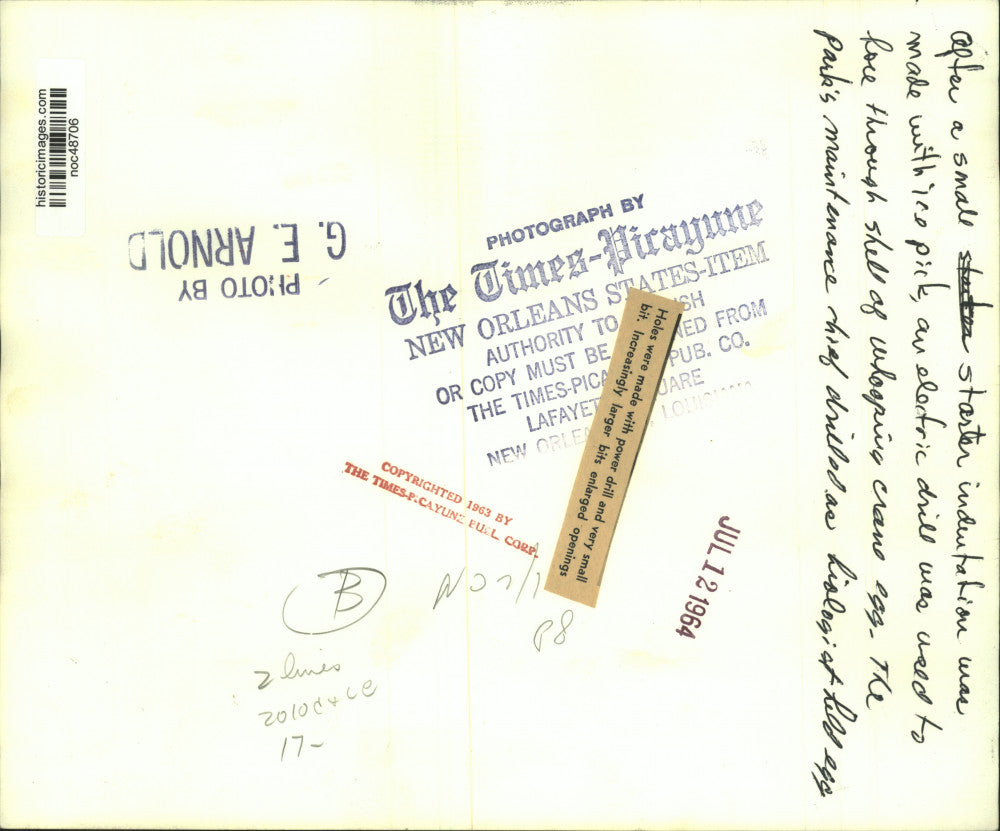 After a small starter indentation was
made with ice pick, an electric drill was used to
bore through shell of whooping crane egg. The
Park's maintenance chief drilled as biologist held egg
historicimages.com
noc48706
PHOTO BY
G. E. ARNOLD
PHOTOGRAPH BY
The Times-Picayune
NEW ORLEANS STATES-ITEM
AUTHORITY TO SH
OR COPY MUST BE NED FROM
THE TIMES-PICA PUB. CO.
LAFAYET UARE
NEW ORLEA LOUISIANA
Holes were made with power drill and very small
bit. Increasingly larger bits enlarged openings
COPYRIGHTED 1963 BY
THE TIMES-PICAYUNE PUBL. CORP.
JUL 12 1964
B
P8
2 lines
17-